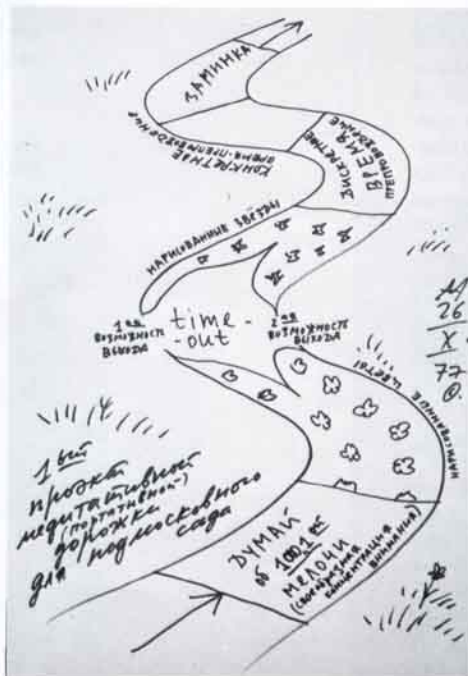 ЗАМИНКА
КОНКРЕТНОЕ
ВРЕМЯ-ПРЕПРОВОЖДЕНИЕ
ДИСКРЕТНОЕ
ВРЕМЯ
ПРЕПРОВОЖДЕНИЕ
НАРИСОВАННЫЕ ЗВЁЗДЫ
1ая
ВОЗМОЖНОСТЬ
ВЫХОДА
time-
-out
2ая
ВОЗМОЖНОСТЬ
ВЫХОДА
М
26
X
77
НАРИСОВАННЫЕ ЦВЕТЫ
1ый
проэкт
медитативной
(портативной)
дорожки
для подмосковного
сада
ДУМАЙ
об 1001ой
МЕЛОЧИ
(СВОЕОБРАЗНАЯ
КОНЦЕНТРАЦИЯ
ВНИМАНИЯ)